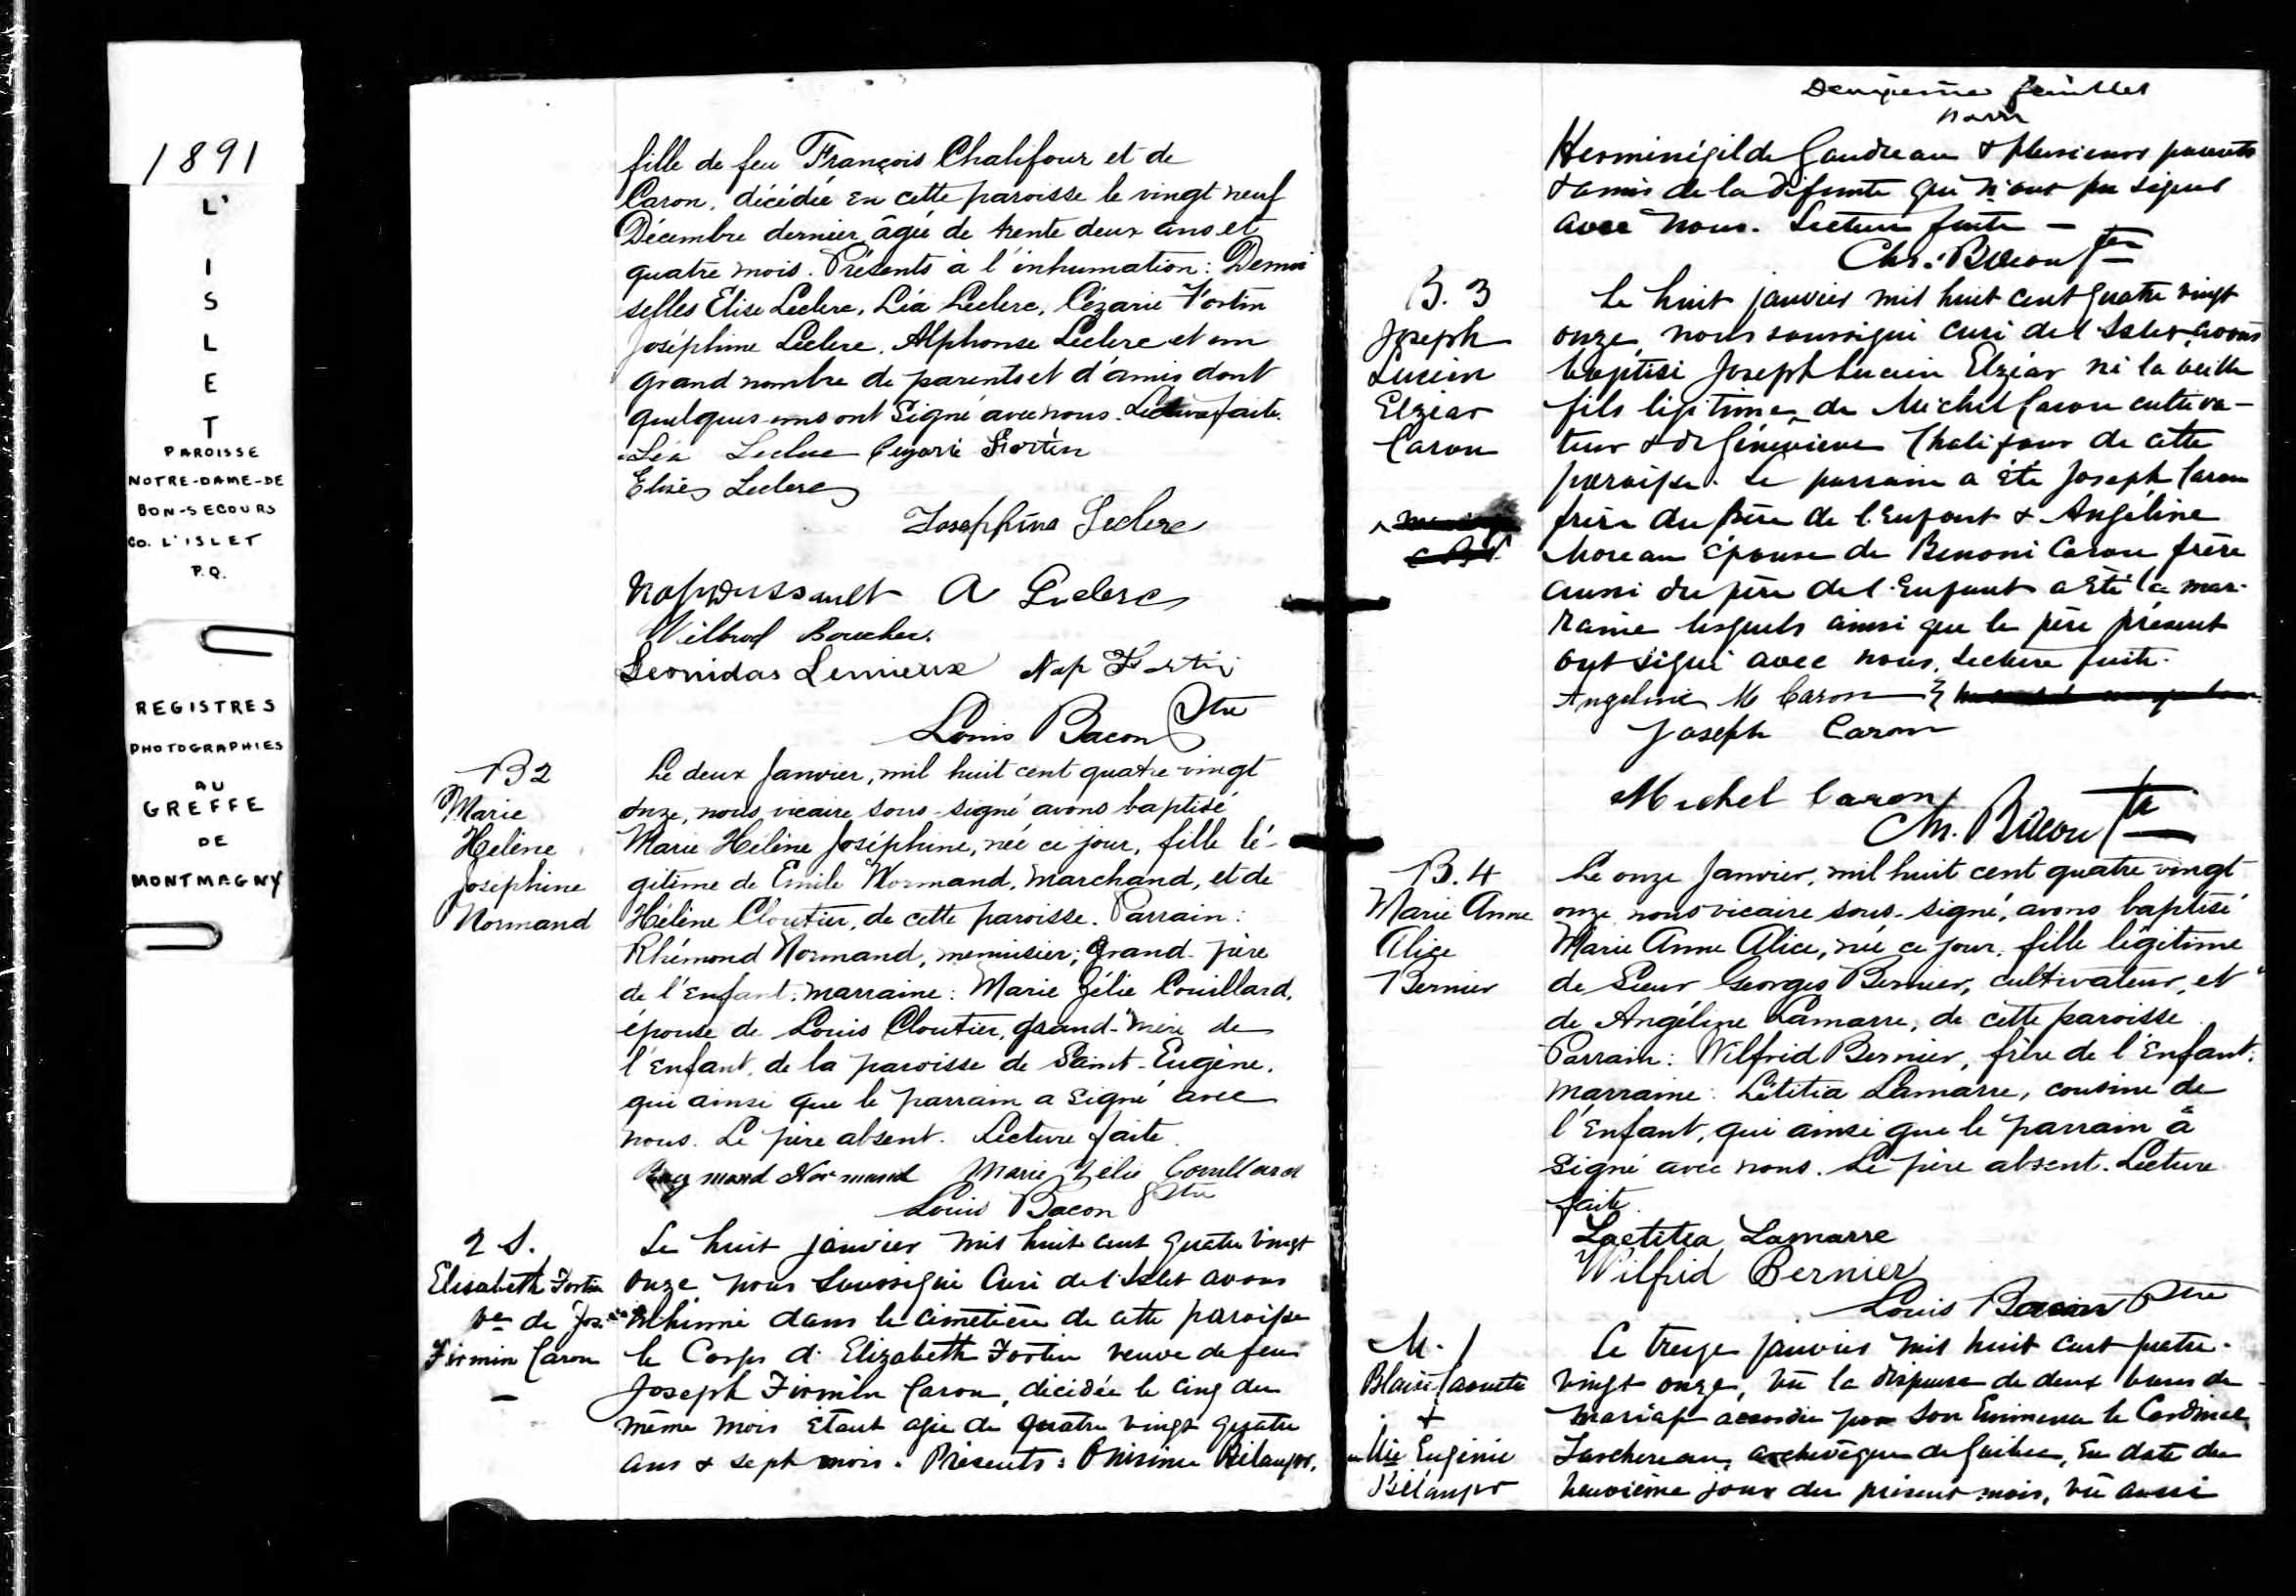 1891
L'
I
S
L
E
T
PAROISSE
NOTRE-DAME-DE
BON-SECOURS
CO. L'ISLET
P.Q.
REGISTRES
PHOTOGRAPHIES
AU
GREFFE
DE
MONTMAGNY
fille de feu François Chalifour et de
Caron, décédée en cette paroisse le vingt neuf
Décembre dernier, âgée de trente deux ans et
quatre mois. Présents à l'inhumation: Demoi
selles Elise Leclerc, Léa Leclerc, Cézarie Fortin
Joséphine Leclerc, Alphonse Leclerc et un
grand nombre de parents et d'amis dont
quelques-uns ont signé avec nous. Lecture faite.
Léa Leclerc Cezarie Fortin
Elise Leclerc
Josephine Leclerc
Nap Dussault A Leclerc
Wilbrod Boucher
Leonidas Lemieux Nap Fortin
Louis Bacon Ptre
B 2
Marie
Hélène
Joséphine
Normand
Le deux Janvier, mil huit cent quatre vingt
onze, nous vicaire sous-signé avons baptisé
Marie Hélène Joséphine, née ce jour, fille lé-
gitime de Emile Normand, marchand, et de
Hélène Cloutier, de cette paroisse. Parrain:
Rhémond Normand, menuisier, grand-père
de l'Enfant; marraine: Marie Zélie Couillard,
épouse de Louis Cloutier, grand-mère de
l'enfant, de la paroisse de Saint-Eugène,
qui ainsi que le parrain a signé avec
nous. Le père absent. Lecture faite.
Raymond Normand Marie Zélie Couillard
Louis Bacon Ptre
2 S.
Elisabeth Fortin
Ve de Jos.
Firmin Caron
Le huit janvier mil huit cent quatre vingt
onze nous soussigné Curé de l'Islet avons
inhumé dans le cimetière de cette paroisse
le Corps d'Elizabeth Fortin veuve de feu
Joseph Firmin Caron, décédée le cinq du
même mois étant agée de quatre vingt quatre
ans & sept mois. Présents: Onésime Bélanger,
Deuxième feuillet
Herménégilde Gaudreau & plusieurs parents
& amis de la défunte qui n'ont pu signer
avec nous. Lecture faite -
Chs. Bacon Ptre
B. 3
Joseph
Lucien
Elzéar
Caron
Le huit janvier mil huit cent quatre vingt
onze nous soussigné curé de l'Islet avons
baptisé Joseph Lucien Elzéar né la veille
fils légitime de Michel Caron cultiva-
teur & de Géneviève Chalifour de cette
paroisse. Le parrain a été Joseph Caron
frère du père de l'enfant & Angéline
Moreau épouse de Benoni Caron frère
aussi du père de l'Enfant a été la mar-
raine lesquels ainsi que le père présent
ont signé avec nous. Lecture faite.
Angeline M Caron
Joseph Caron
Michel Caron
Chs. Bacon Ptre
B. 4
Marie Anne
Alice
Bernier
Le onze Janvier, mil huit cent quatre vingt
onze nous vicaire sous-signé, avons baptisé
Marie Anne Alice, née ce jour, fille légitime
de Sieur Georges Bernier, cultivateur, et
de Angéline Lamarre, de cette paroisse.
Parrain: Wilfrid Bernier, frère de l'Enfant;
marraine: Létitia Lamarre, cousine de
l'Enfant, qui ainsi que le parrain à
signé avec nous. Le père absent. Lecture
faite.
Laetitia Lamarre
Wilfrid Bernier
Louis Bacon Ptre
M. 1
Blaise Caouette
&
Eugénie
Bélanger
Le treize janvier mil huit cent quatre-
vingt onze, vû la dispense de deux bans de
mariage accordée par Son Eminence le Cardinal
Taschereau, archevêque de Québec, en date du
neuvième jour du présent mois, vû aussi